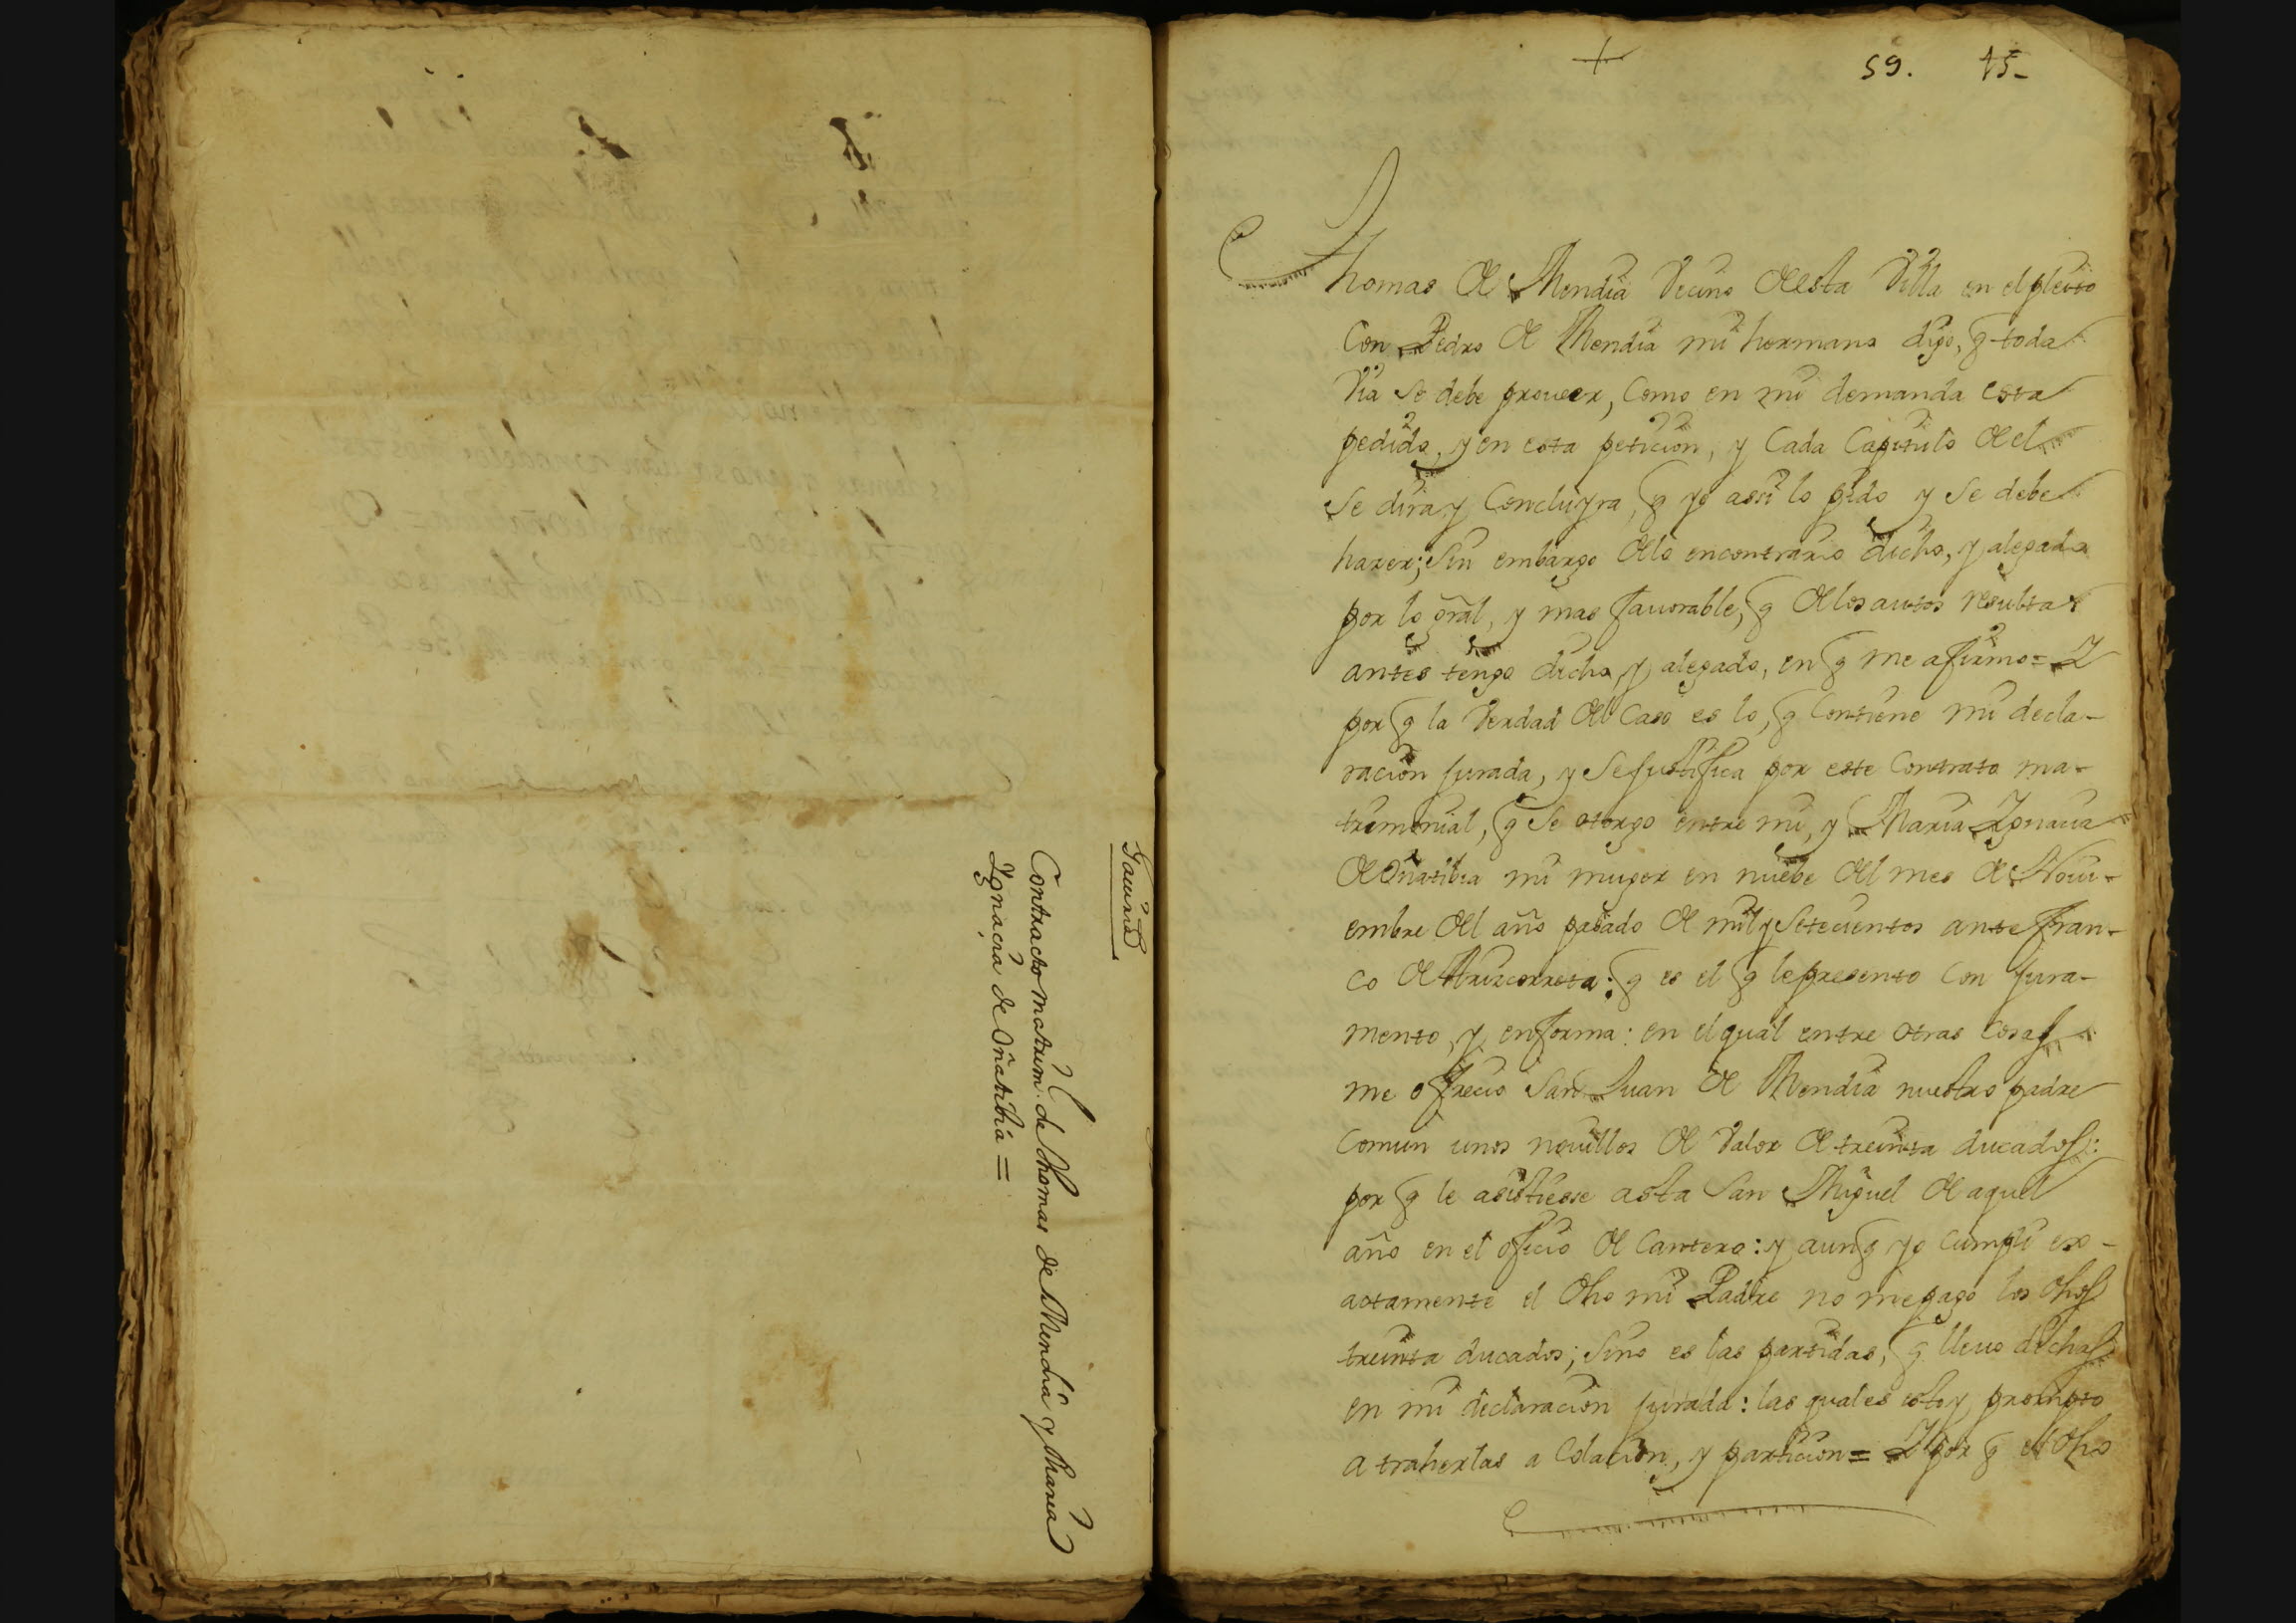 Gauiria
Contracto matrim. de Thomas de Mendia y Maria
Ygnacia de Oñatibia =
+
59. 15-
Thomas de Mendia Vecino de esta Villa en el pleito
Con Pedro de Mendia mi hermano digo, q toda
Via se debe proueer, Como en mi demanda esta
pedido, y en esta peticion, y Cada Capitulo de el
Se dira y Concluyra, q yo assi lo pido y Se debe
hazer; Sin embargo de lo encontrario dicho, y alegado
por lo gñal, y mas fauorable, q de los autos resulta
antes tengo dicho, y alegado, en q me afirmo = Y
por q la Verdad del Caso es lo, q Contiene mi decla-
racion jurada, y Se justifica por este Contrato ma-
trimonial, q Se otorgo entre mi, y Maria Ygnacia
de Oñatibia mi muger en nuebe del mes de Noui-
embre del año pasado de mil y Setecientos ante Fran-
co de Aruizcorreta: q es el q le presento Con jura-
mento, y en forma: en el qual entre otras Cosas
me ofrecio San Juan de Mendia nuestro padre
Comun unos nouillos de Valor de treinta ducados:
por q le asistiesse asta San Miguel de aquel
año en el oficio de Cantero: y aunq yo Cumpli exa-
ctamente el dho mi Padre no me pago los dhos
treinta ducados; Sino es las partidas, q lleuo dichas
en mi declaracion jurada: las quales estoy prompto
a traherlas a Colacion, y particion = Y por q el dho